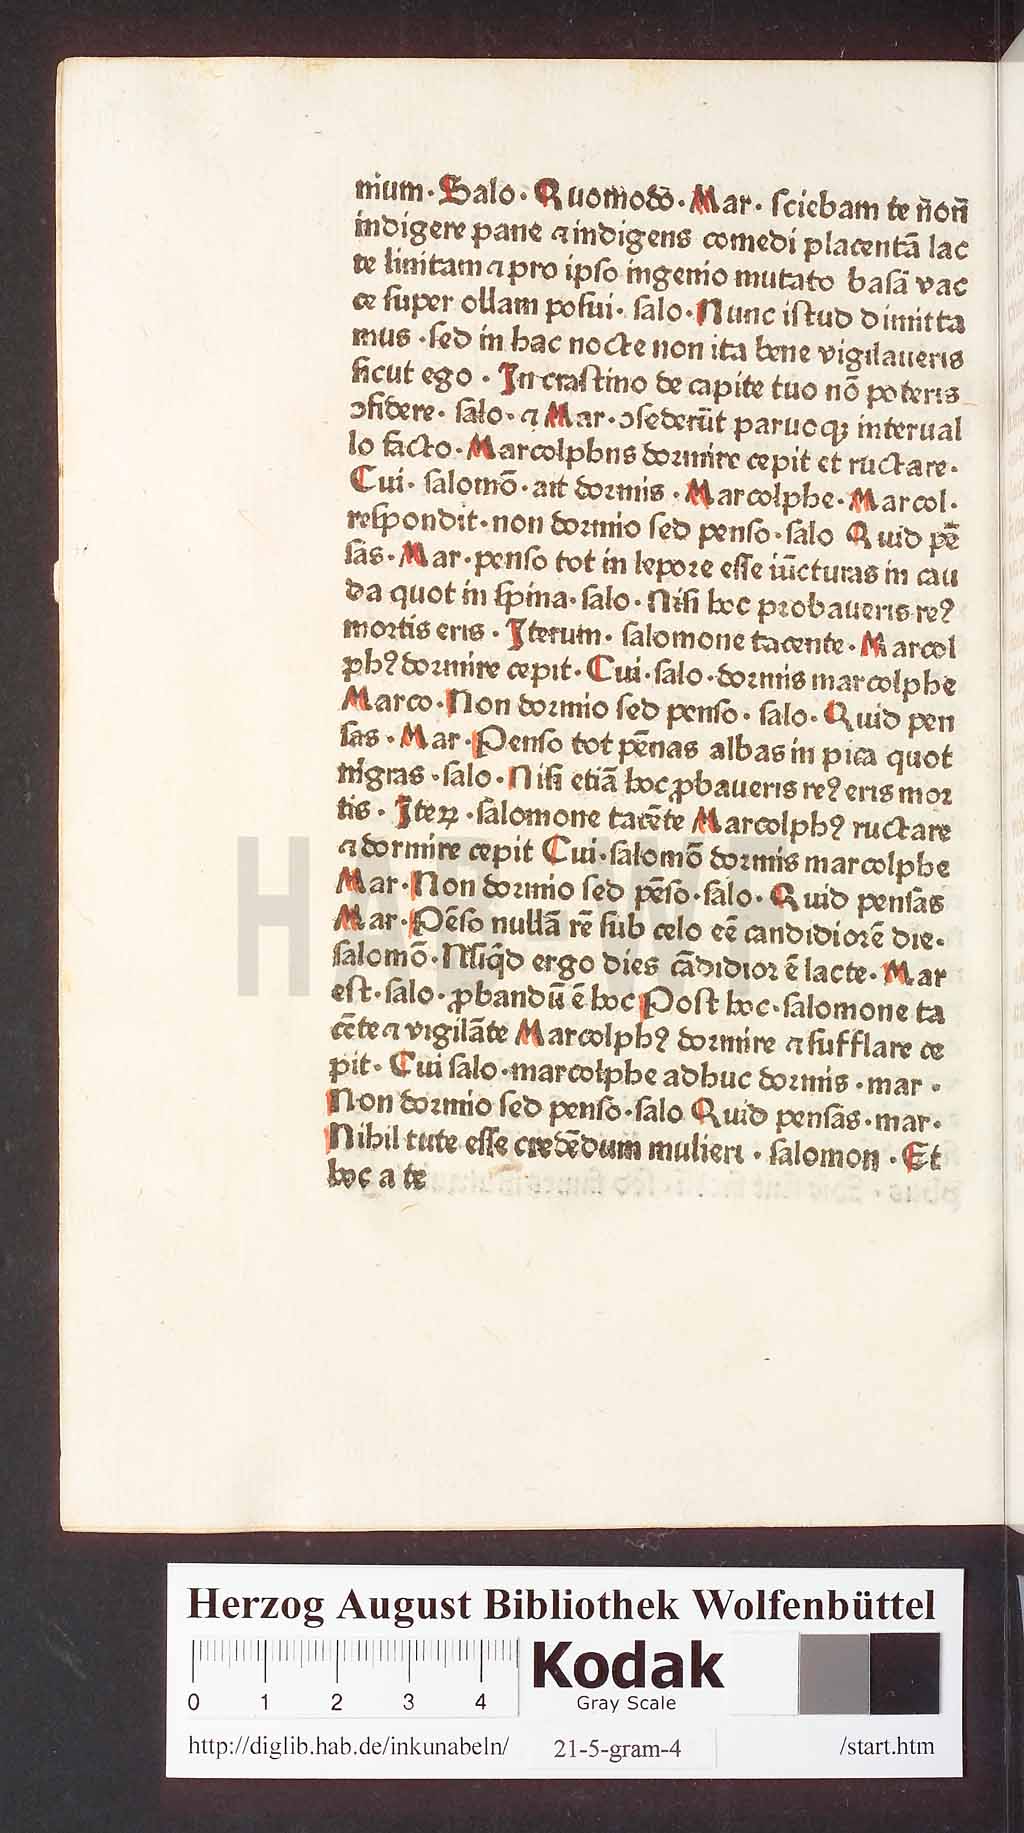 nium · Salo · Quomodō · Mar · sciebam te n̄on̄
indigere pane ⁊ indigens comedi placentā lac
te linitam ⁊ pro ipso ingenio mutato basā vac
ce super ollam posui · salo · Nunc istud dimitta
mus · sed in hac nocte non ita bene vigilaueris
sicut ego · In crastino de capite tuo nō poteris
ↄfidere · salo · ⁊ Mar · ↄsederūt paruoqꝫ interual
lo facto · Marcolphus dormire cepit et ructare ·
Cui · salomō · ait dormis · Marcolphe · Marcol ·
respondit · non dormio sed penso · salo Quid pē
sas · Mar · penso tot in lepore esse iūcturas in cau
da quot in spina · salo · Nisi hoc probaueris reꝰ
mortis eris · Iterum · salomone tacente · Marcol
phꝰ dormire cepit · Cui · salo · dormis marcolphe
Marco · Non dormio sed penso · salo · Quid pen
sas · Mar · Penso tot pēnas albas in pica quot
nigras · salo · Nisi etiā hoc ꝓbaueris reꝰ eris mor
tis · Iteꝝ · salomone tacēte Marcolphꝰ ructare
⁊ dormire cepit Cui · salomō dormis marcolphe
Mar · Non dormio sed pēso · salo · Quid pensas
Mar · Pēso nullā rē sub celo eē candidiorē die ·
salomō · Nūqd̄ ergo dies cādidior ē lacte · Mar
est · salo · ꝓbandū ē hoc Post hoc · salomone ta
cēte ⁊ vigilāte Marcolphꝰ dormire ⁊ sufflare ce
pit · Cui salo · marcolphe adhuc dormis · mar ·
Non dormio sed penso · salo Quid pensas · mar ·
Nihil tute esse credēdum mulieri · salomon · Et
hoc a te
HAB-WF
Herzog August Bibliothek Wolfenbüttel
0 1 2 3 4 Kodak
Gray Scale
http://diglib.hab.de/inkunabeln/ 21-5-gram-4 /start.htm